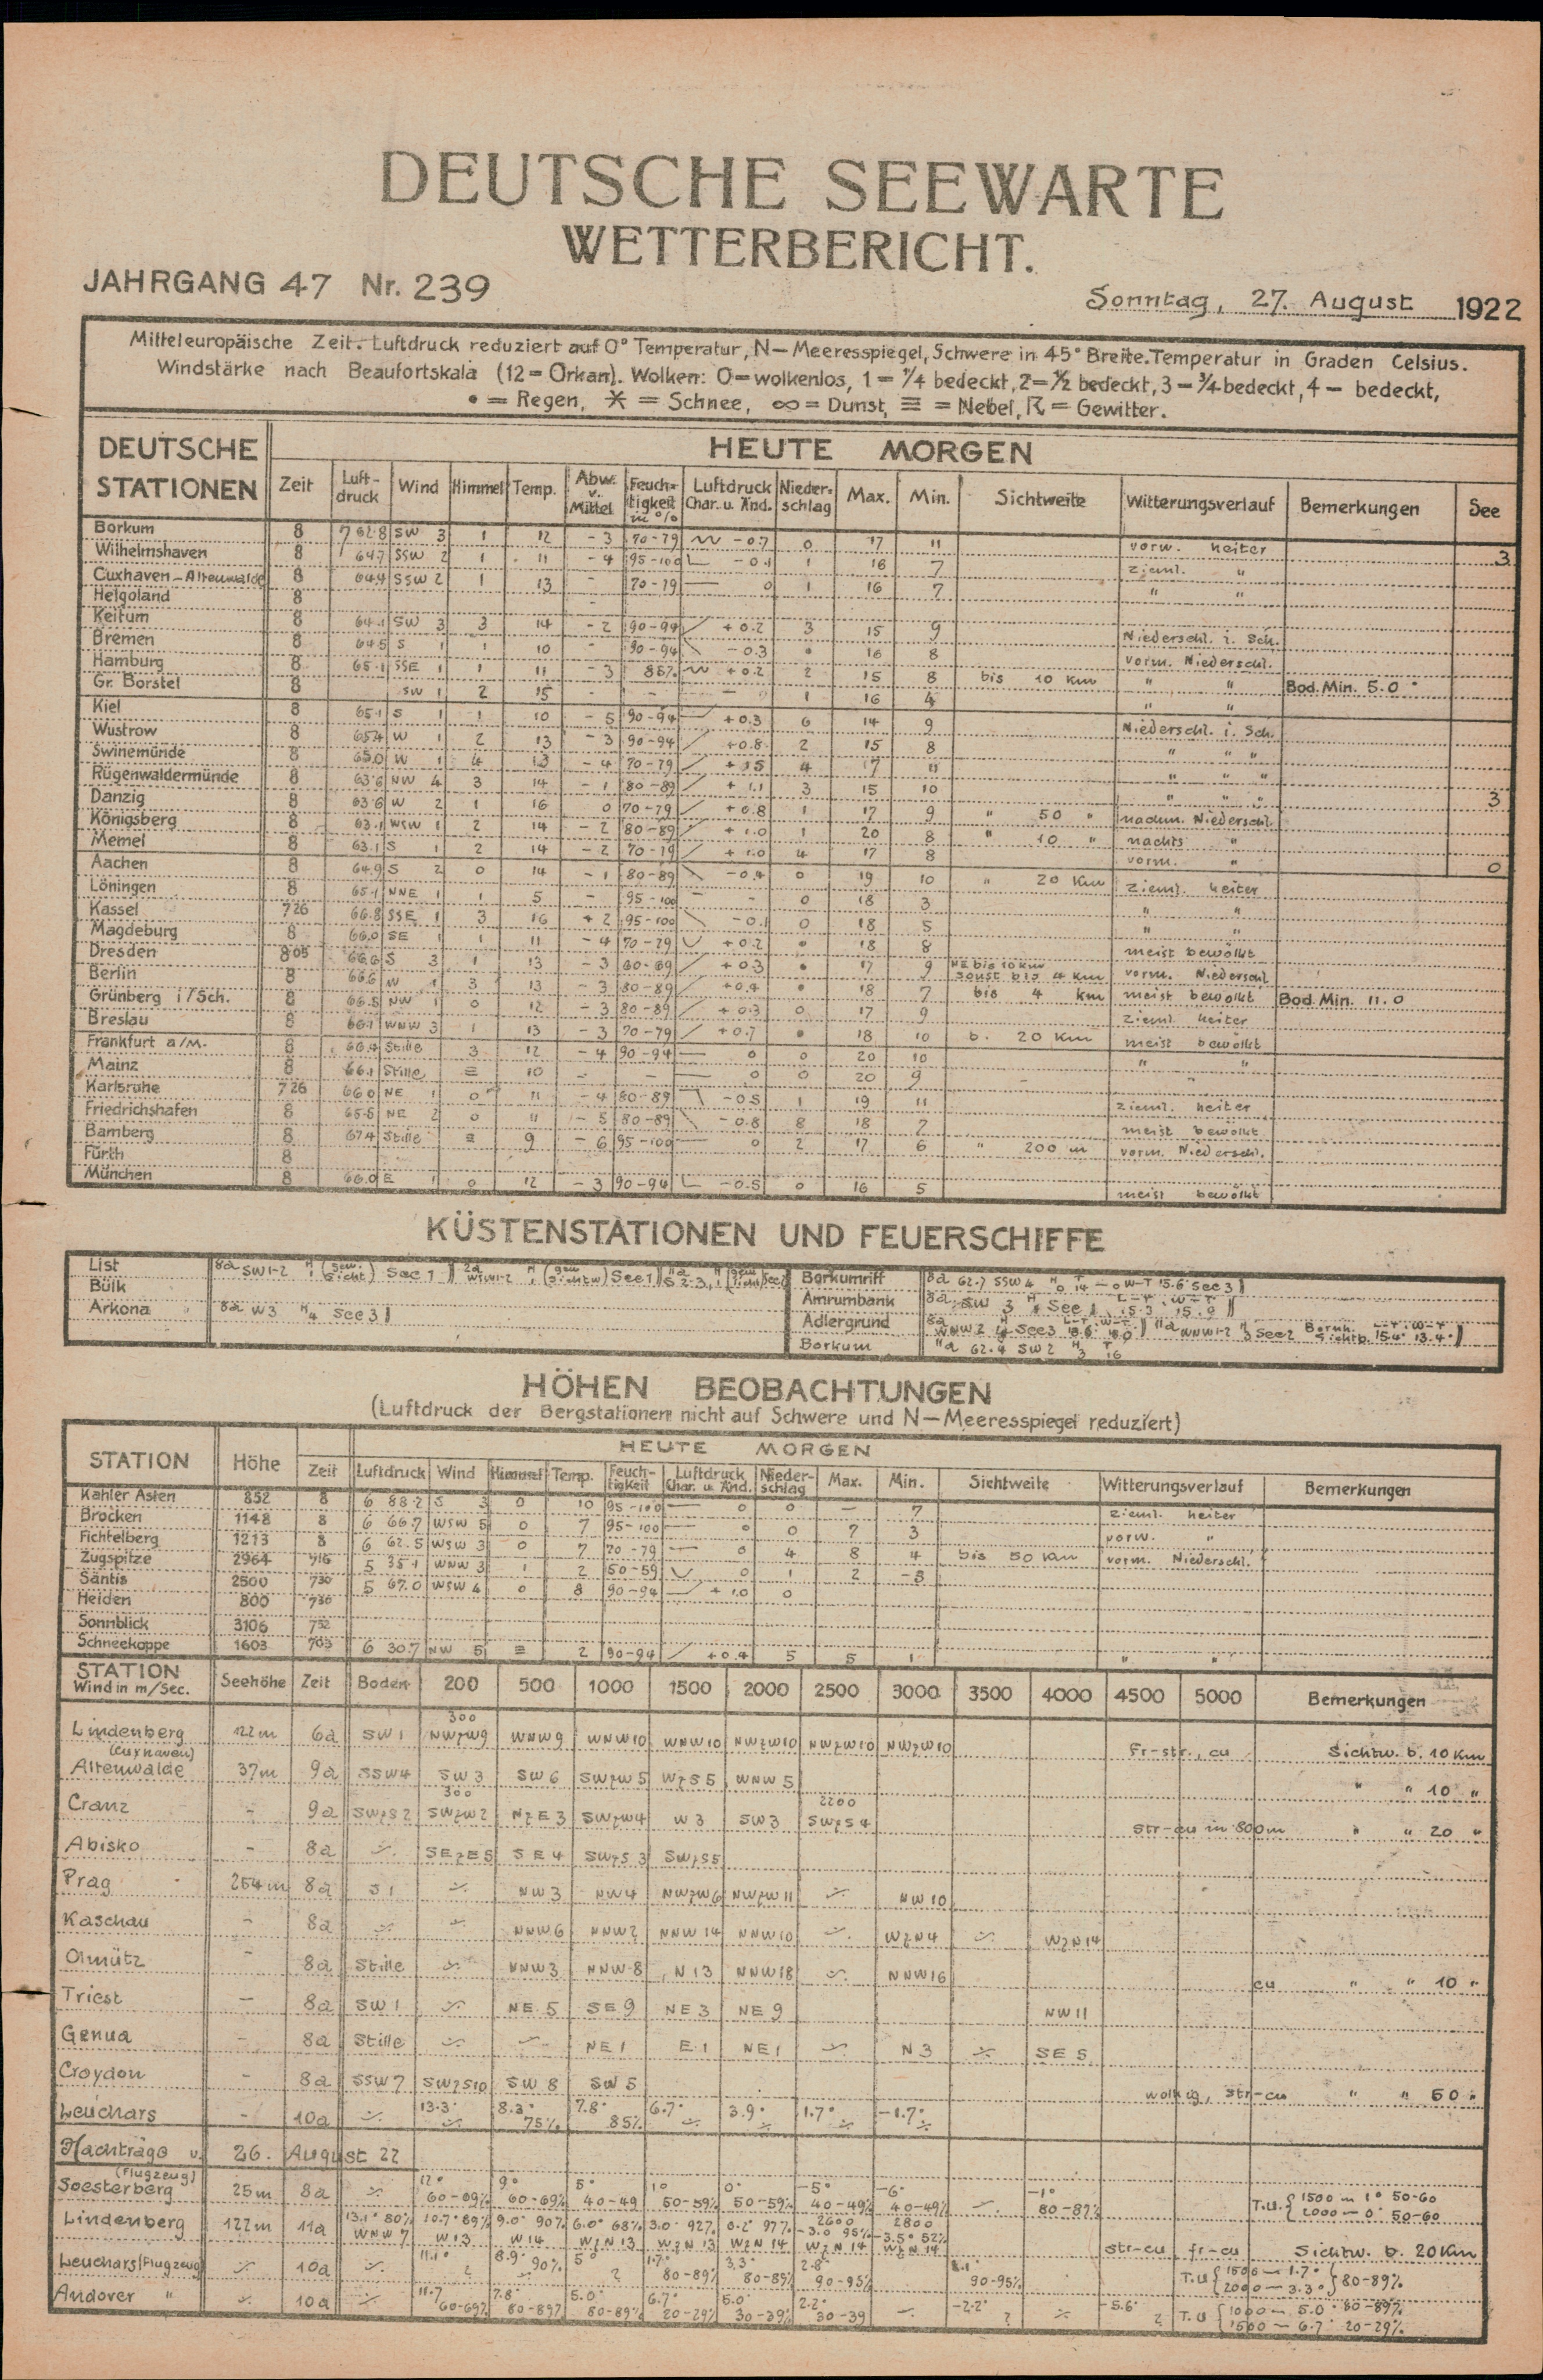 DEUTSCHE SEEWARTE
WETTERBERICHT.
JAHRGANG 47 Nr. 239
Sonntag, 27. August 1922
Mitteleuropäische Zeit. Luftdruck reduziert auf 0° Temperatur, N—Meeresspiegel, Schwere in 45° Breite. Temperatur in Graden Celsius.
Windstärke nach Beaufortskala (12 = Orkan). Wolken: 0=wolkenlos, 1 = 1/4 bedeckt, 2=1/2 bedeckt, 3 = 3/4 bedeckt, 4 — bedeckt,
• = Regen, ✱ = Schnee, ∞ = Dunst, ≡ = Nebel, ☈ = Gewitter.
DEUTSCHE STATIONEN HEUTE MORGEN
Zeit Luftdruck Wind Himmel Temp. Abw. v. Mittel Feuchtigkeit in % Luftdruck Char. u. Änd. Niederschlag Max. Min. Sichtweite Witterungsverlauf Bemerkungen See
Borkum 8 762.8 SW 3 1 12 -3 70-79 -0.7 0 17 11 vorw. heiter 3
Wilhelmshaven 8 64.7 SSW 2 1 11 -4 95-100 -0.1 1 16 7 zieml. "
Cuxhaven-Altenwalde 8 64.4 SSW 2 1 13 - 70-79 — 0 1 16 7 " "
Helgoland 8
Keitum 8 64.1 SW 3 3 14 -2 90-94 +0.2 3 15 9 Niederschl. i. Sch.
Bremen 8 64.5 S 1 1 10 - 90-94 -0.3 • 16 8 vorm. Niederschl.
Hamburg 8 65.1 SSE 1 1 11 -3 88% +0.2 2 15 8 bis 10 km " " Bod. Min. 5.0°
Gr. Borstel 8 SW 1 2 15 - - - 1 16 4 " "
Kiel 8 65.1 S 1 1 10 -5 90-94 +0.3 6 14 9 Niederschl. i. Sch.
Wustrow 8 65.4 W 1 2 13 -3 90-94 +0.8 2 15 8 " " "
Swinemünde 8 65.0 W 1 4 13 -4 70-79 +1.5 4 17 11 " " "
Rügenwaldermünde 8 63.6 NW 4 3 14 -1 80-89 +1.1 3 15 10 " " " 3
Danzig 8 63.6 W 2 1 16 0 70-79 +0.8 1 17 9 " 50 " nachm. Niederschl.
Königsberg 8 63.1 WSW 1 2 14 -2 80-89 +1.0 1 20 8 " 10 " nachts "
Memel 8 63.1 S 1 2 14 -2 70-79 +1.0 4 17 8 vorm. " 0
Aachen 8 64.9 S 2 0 14 -1 80-89 -0.4 0 19 10 " 20 Km zieml. heiter
Löningen 8 65.1 NNE 1 1 5 - 95-100 - 0 18 3 " "
Kassel 7 26 66.8 SSE 1 3 16 +2 95-100 -0.1 0 18 5 " "
Magdeburg 8 66.0 SE 1 1 11 -4 70-79 +0.2 • 18 8 meist bewölkt
Dresden 8 05 66.6 S 3 1 13 -3 60-69 +0.3 • 17 9 NE bis 10 km sonst bis 4 km vorm. Niederschl.
Berlin 8 66.6 W 1 3 13 -3 80-89 +0.4 • 18 7 bis 4 km meist bewölkt Bod. Min. 11.0
Grünberg i/Sch. 8 66.5 NW 1 0 12 -3 80-89 +0.3 0 17 9 zieml. heiter
Breslau 8 66.1 WNW 3 1 13 -3 70-79 +0.7 • 18 10 b. 20 Km meist bewölkt
Frankfurt a/M. 8 66.4 Stille 3 12 -4 90-94 — 0 0 20 10 " "
Mainz 8 66.1 Stille ≡ 10 - - — 0 0 20 9 - "
Karlsruhe 7 26 66.0 NE 1 0 11 -4 80-89 -0.5 1 19 11 zieml. heiter
Friedrichshafen 8 65.8 NE 2 0 11 -5 80-89 -0.8 8 18 7 meist bewölkt
Bamberg 8 67.4 Stille ≡ 9 -6 95-100 — 0 2 17 6 " 200 m vorm. Niederschl.
Fürth 8
München 8 66.0 E 1 0 12 -3 90-94 -0.5 0 16 5 meist bewölkt
KÜSTENSTATIONEN UND FEUERSCHIFFE
List 8a SW1-2
Bülk
Arkona 8a W3 H 4 See 3
Borkumriff 8a 62.7 SSW 4 H 0 T 14 W-T 15.6 See 3
Amrumbank 8a SW 3 See 1 15.3 15.9
Adlergrund 8a WNW 2 See 3
Borkum 11a 62.4 SW 2 H 3 T 16
HÖHEN BEOBACHTUNGEN
(Luftdruck der Bergstationen nicht auf Schwere und N—Meeresspiegel reduziert)
STATION Höhe HEUTE MORGEN
Zeit Luftdruck Wind Himmel Temp. Feuchtigkeit Luftdruck Char. u. Änd. Niederschlag Max. Min. Sichtweite Witterungsverlauf Bemerkungen
Kahler Asten 852 8 6 88.2 S 3 0 10 95-100 — 0 0 — 7 zieml. heiter
Brocken 1148 8 6 66.7 WSW 5 0 7 95-100 — 0 0 7 3 vorw. "
Fichtelberg 1213 8 6 62.5 WSW 3 0 7 70-79 — 0 4 8 4 bis 50 Km vorm. Niederschl.
Zugspitze 2964 7 16 5 35.1 WNW 3 1 2 50-59 0 1 2 -3
Säntis 2500 7 30 5 67.0 WSW 4 0 8 90-94 +1.0 0
Heiden 800 7 30
Sonnblick 3106 7 52
Schneekoppe 1603 7 03 6 30.7 NW 5 ≡ 2 90-94 +0.4 5 5 1 " "
STATION Wind in m/Sec. Seehöhe Zeit Boden 200 500 1000 1500 2000 2500 3000 3500 4000 4500 5000 Bemerkungen
300
Lindenberg 122m 6a SW 1 NWzW9 WNW 9 WNW 10 WNW 10 NWzW10 NWzW10 NWzW10 Fr-str, cu Sichtw. b. 10 Km
(Cuxhaven)
Altenwalde 37m 9a SSW4 SW 3 SW 6 SWzW 5 WzS 5 WNW 5 " " 10 "
300 2200
Cranz - 9a SWzS 2 SWzW 2 NzE 3 SWzW4 W 3 SW 3 SWzS 4 Str-cu in 800m " " 20 "
Abisko - 8a SEzE 5 SE 4 SWzS 3 SWzS 5
Prag 254m 8a S 1 NW 3 NW 4 NWzW 6 NWzW 11 NW 10
Kaschau - 8a NNW6 NNW 2 NNW 14 NNW 10 WzN 4 WzN 14
Olmütz - 8a Stille NNW 3 NNW 8 N 13 NNW 18 NNW 16 cu " " 10 "
Triest - 8a SW 1 NE 5 SE 9 NE 3 NE 9 NW 11
Genua - 8a Stille NE 1 E 1 NE 1 N 3 SE 5
Croydon - 8a SSW 7 SWzS10 SW 8 SW 5 wolkig, str-cu " " 50 "
Leuchars - 10a 13.3° 8.3° 75% 7.8° 85% 6.7° 3.9° 1.7° -1.7°
Nachträge v. 26. August 22
(Flugzeug)
Soesterberg 25m 8a 12° 60-69% 9° 60-69% 5° 40-49 1° 50-59% 0° 50-59% -5° 40-49% -6° 40-49% -1° 80-89% T.U. { 1500 m 1° 50-60 2000 — 0° 50-60
Lindenberg 122m 11a 13.1° 80% WNW 7 10.7° 89% W 13 9.0° 90% W 14 6.0° 68% WzN 13 3.0° 92% WzN 13 0.2° 97% WzN 14 2600 -3.0 95% WzN 14 2800 -3.5° 52% WzN 14 str-cu fr-cu Sichtw. b. 20 Km
Leuchars (Flugzeug) 10a 11.1° ? 8.9° 90% 5° ? 1.7° 80-89% 3.3° 80-89% 2.8° 90-95% 90-95% T.U { 1500 — 1.7° 2000 — 3.3° } 80-89%
Andover " 10a 11.7 60-69% 7.8° 80-89% 5.0° 80-89% 6.7° 20-29% 5.0° 30-39% 2.2° 30-39 -2.2° ? -5.6° ? T.U { 1000 — 5.0° 80-89% 1500 — 6.7° 20-29%